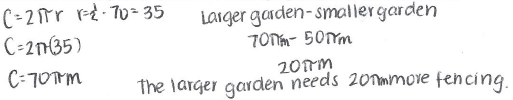 C=2πr r=½·70=35
C=2π(35)
C=70πm
Larger garden-smaller garden
70πm-50πm
20πm
The larger garden needs 20πm more fencing.